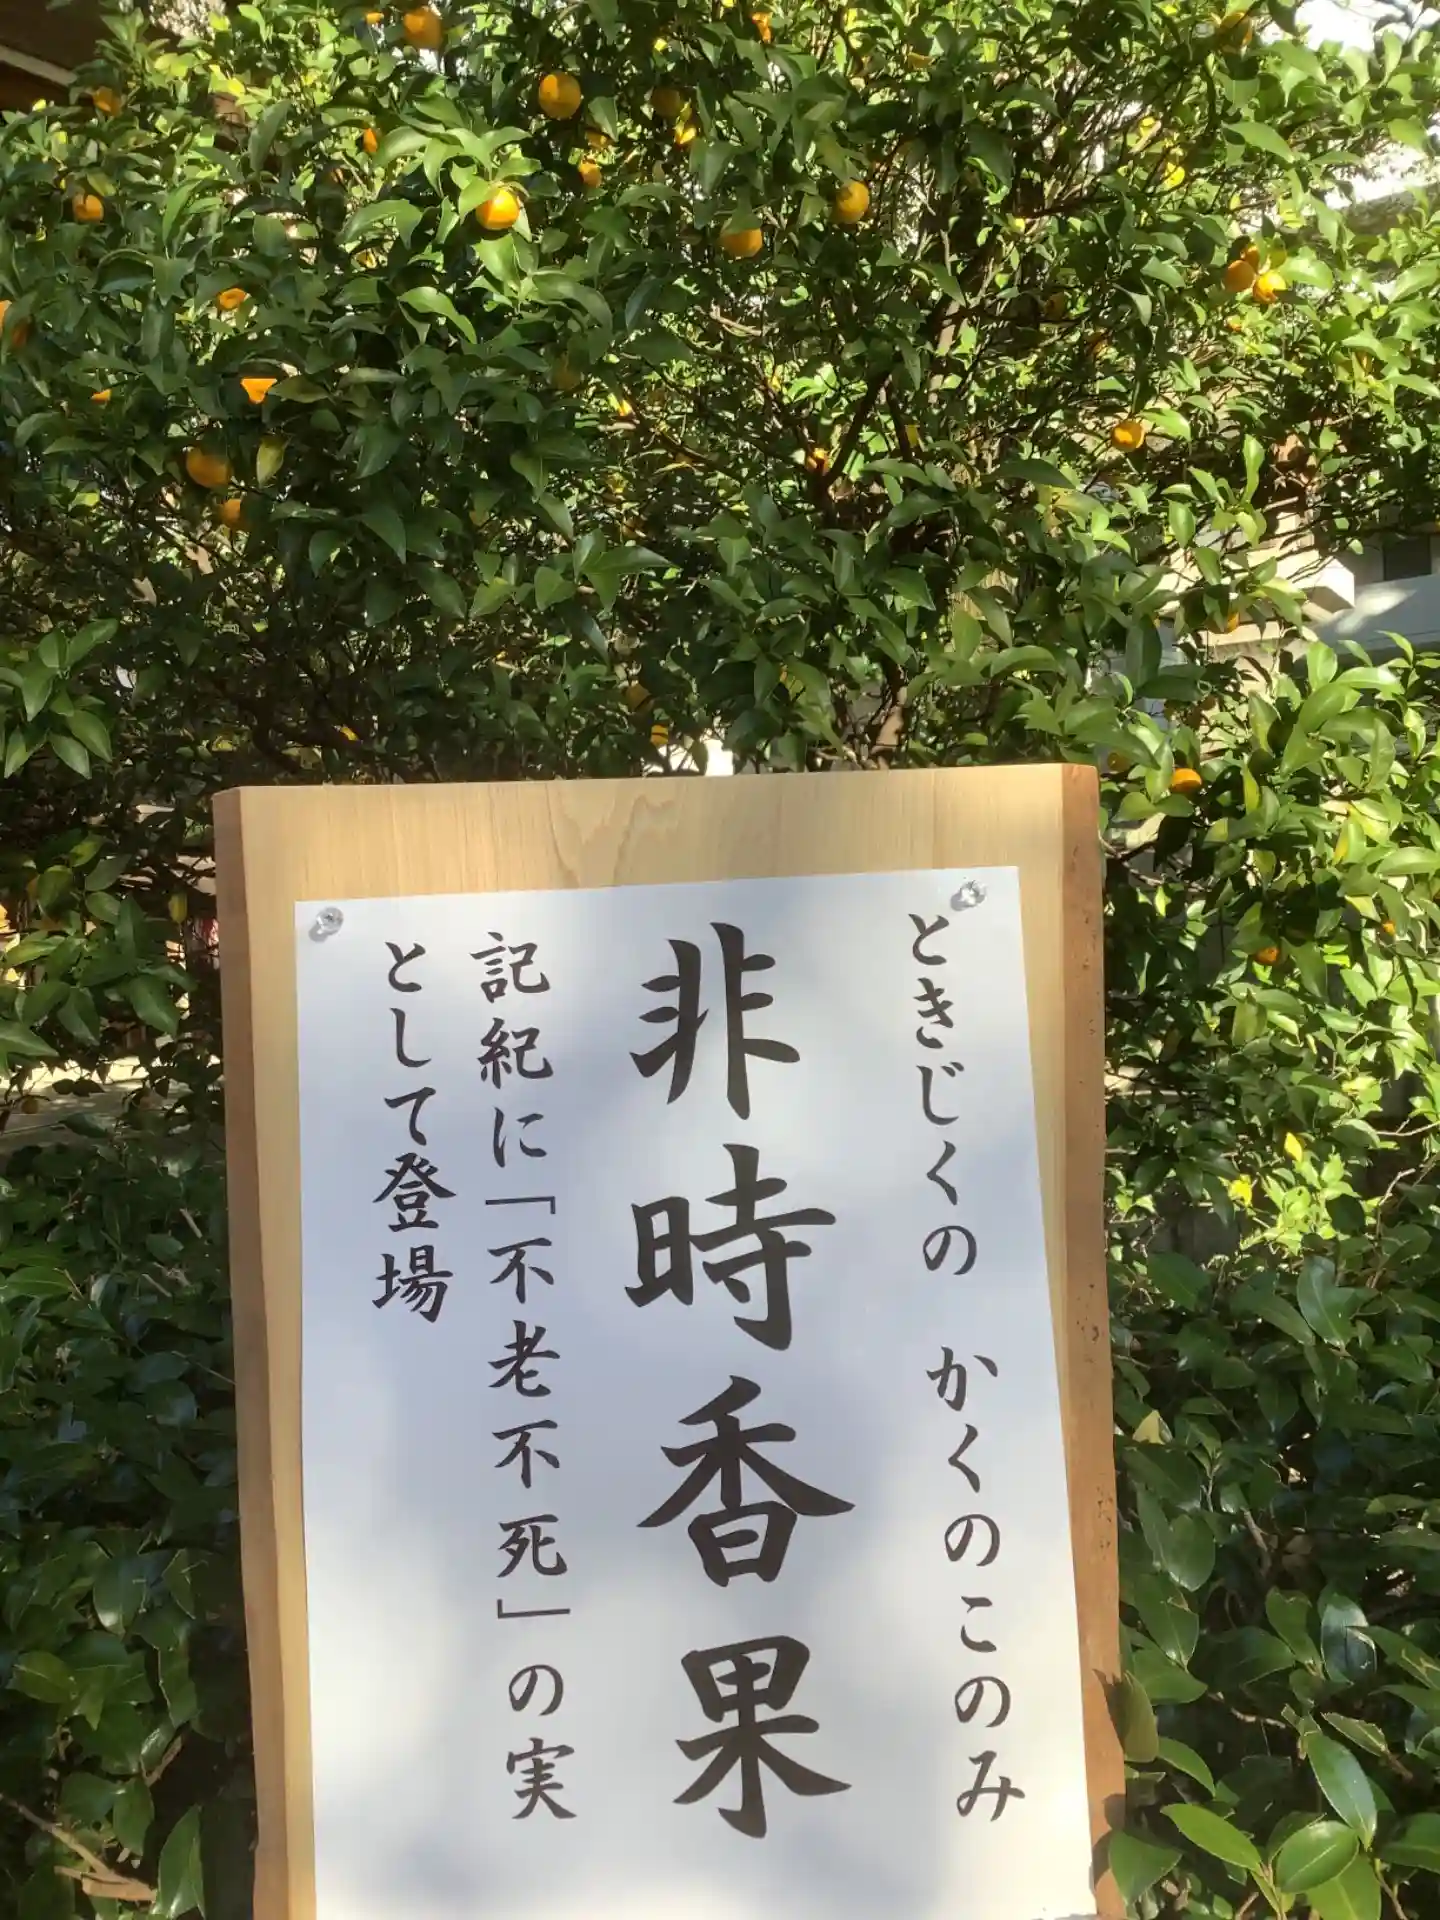 ときじくの かくのこのみ
非時香果
記紀に「不老不死」の実
として登場